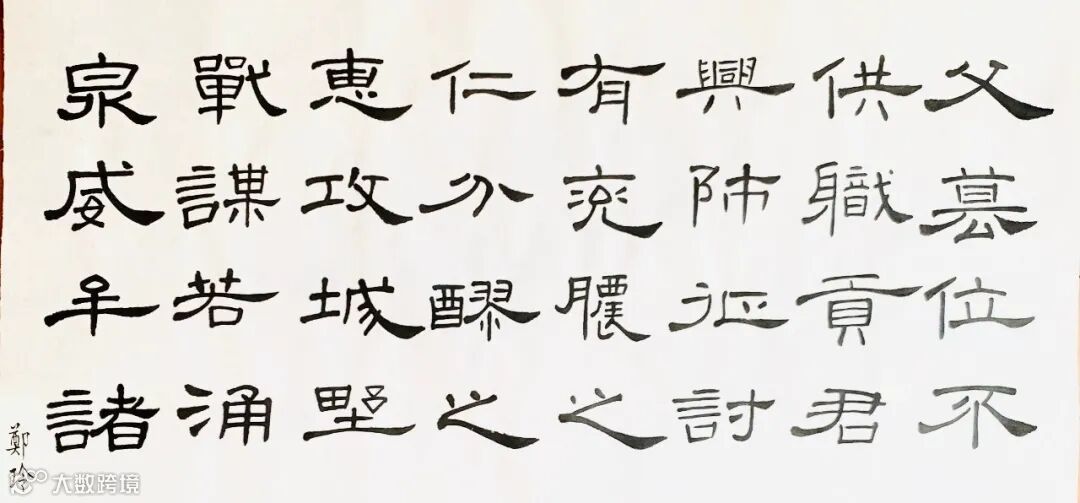 父篡位不
供職貢君
興師征討
有兗膿之
仁分醪之
惠攻城野
戰謀若涌
泉威牟諸
鄭玲
大数跨境